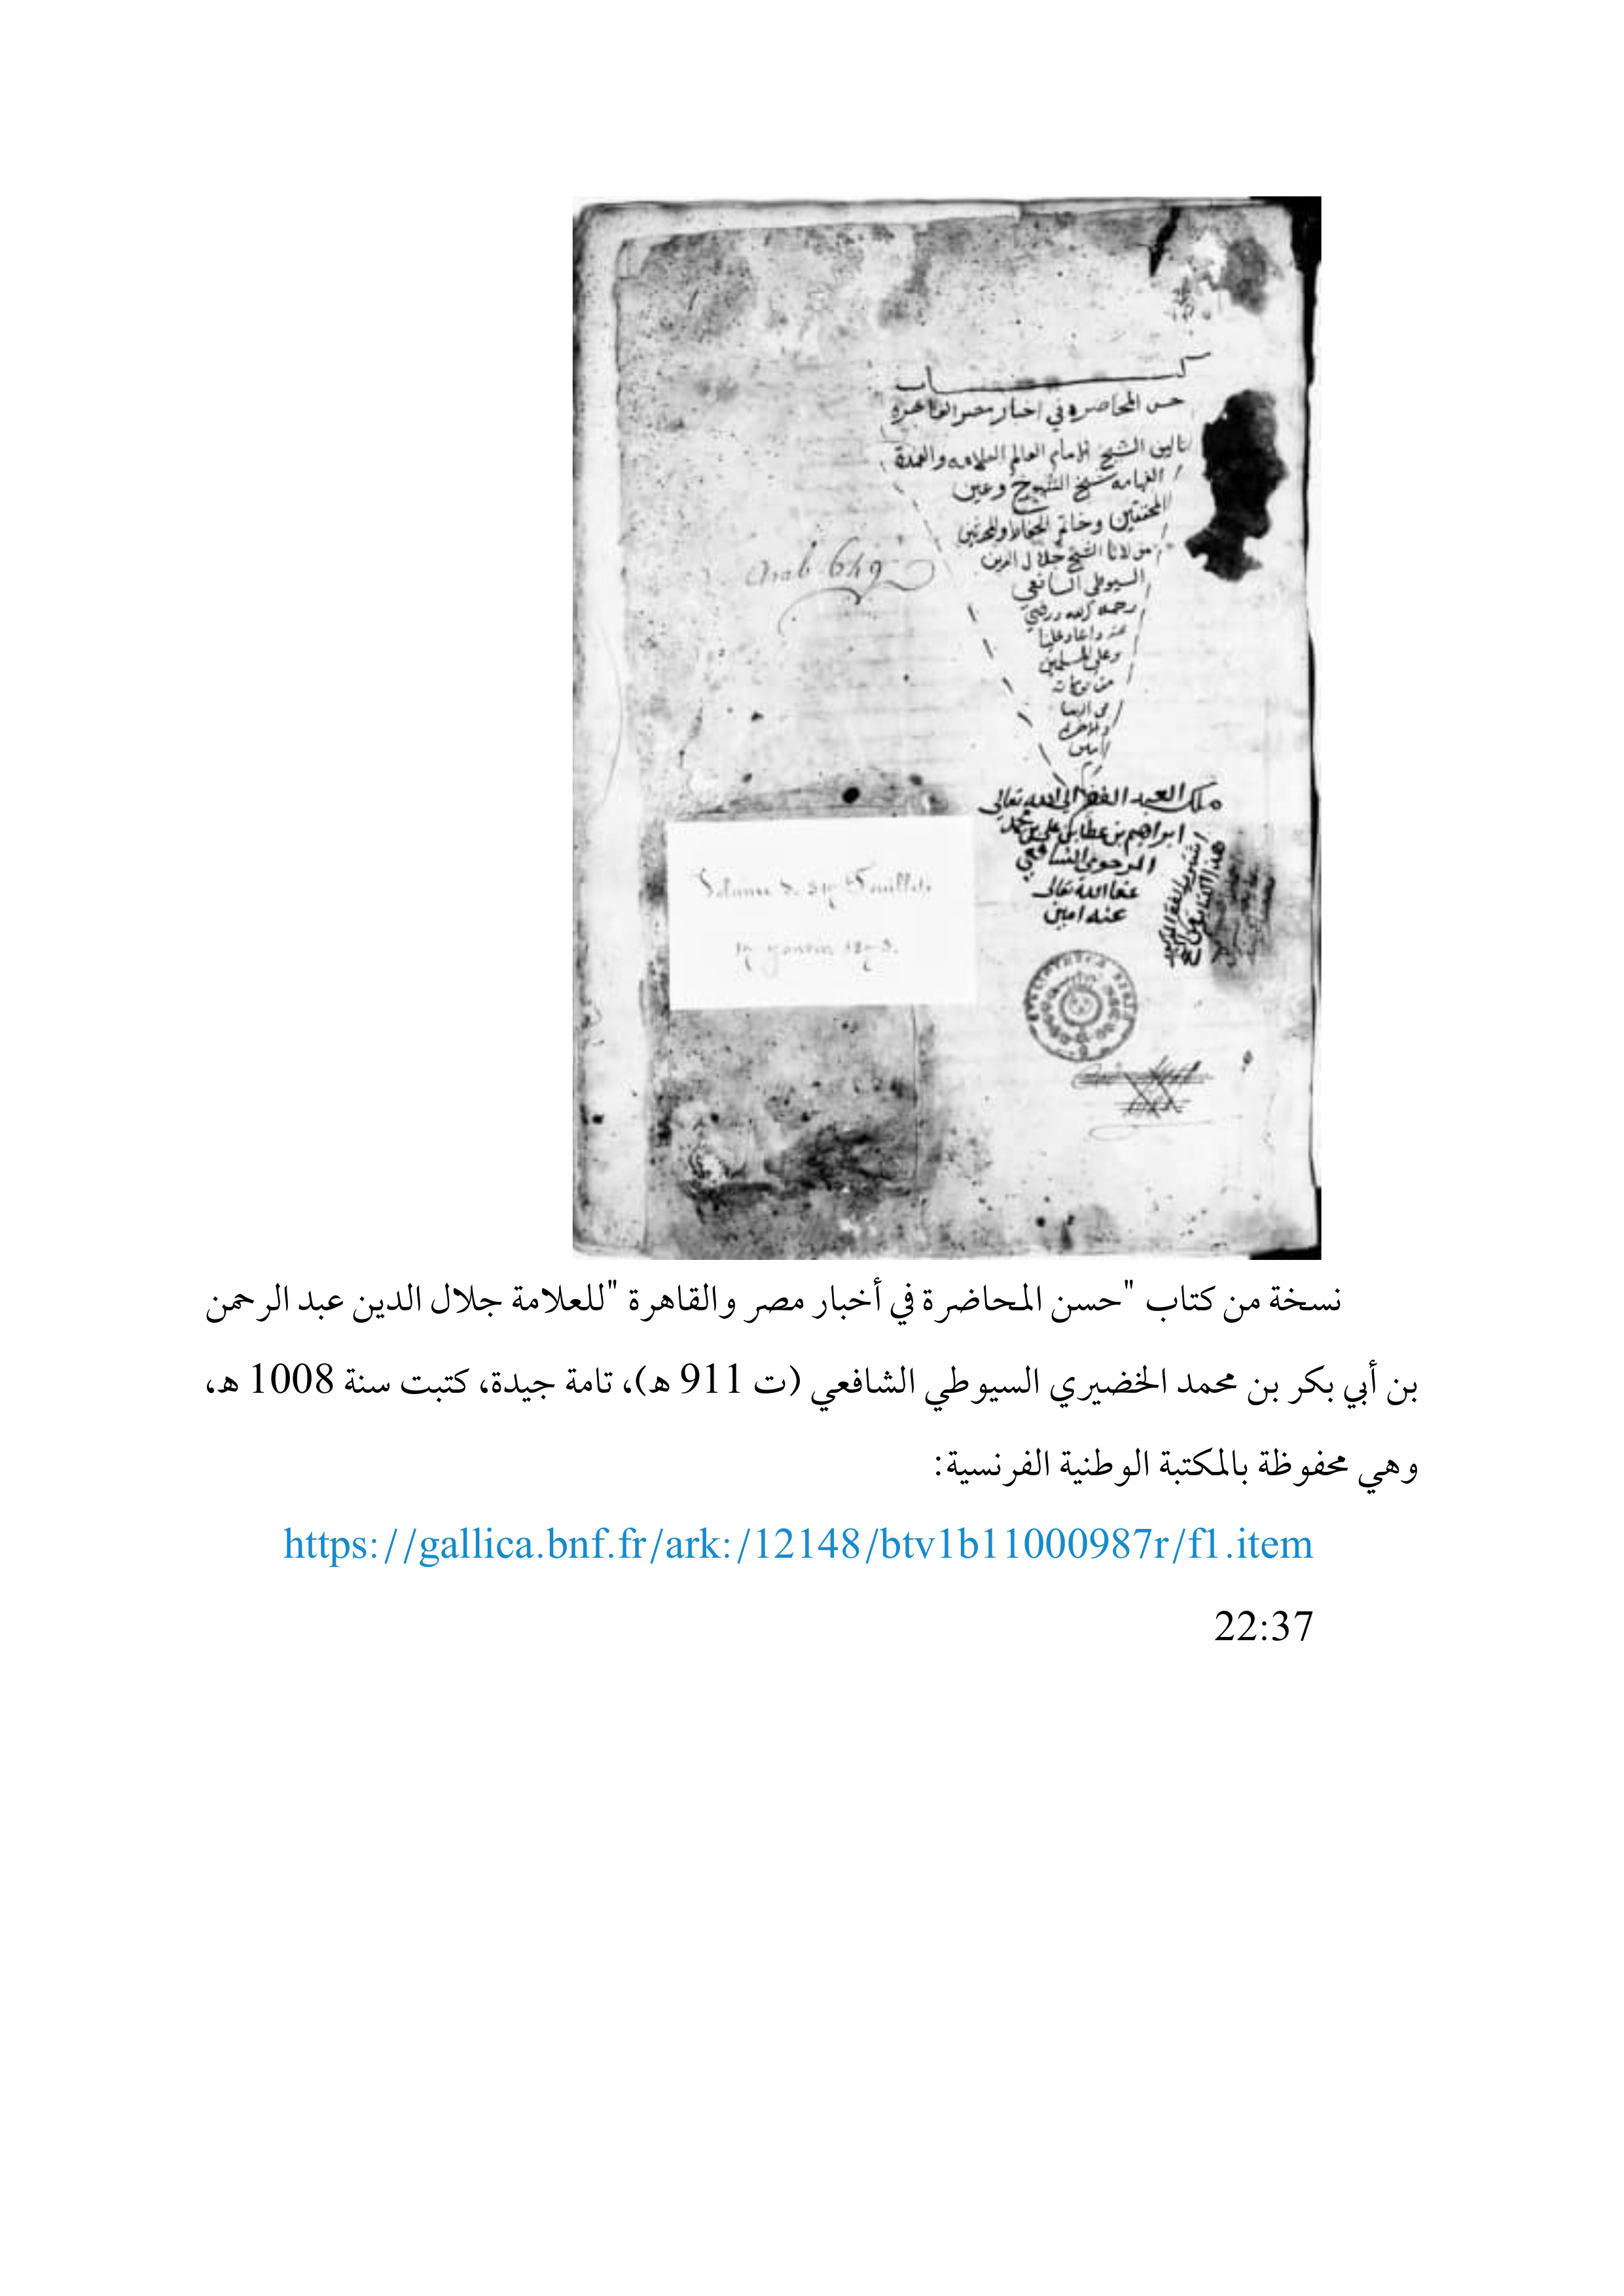 كتاب
حسن المحاضرة في اخبار مصر والقاهرة
تاليف الشيخ الامام العالم العلامه والعمدة
الفهامه شيخ الشيوخ وعين
المحققين وخاتم الحفاظ والمحدثين
مولانا الشيخ جلال الدين
السيوطى الشافعي
رحمه الله ورضي
عنه واعاد علينا
وعلى المسلمين
من بركاته
في الدنيا
والاخرة
امين
Arab 649
ملك العبد الفقير الي الله تعالى
ابراهيم بن عطا بن علي بن محمد
المرحومى الشافعي
عفا الله تعالى
عنه امين
Volume de Feuillets
Janvier
نسخة من كتاب "حسن المحاضرة في أخبار مصر والقاهرة "للعلامة جلال الدين عبد الرحمن
بن أبي بكر بن محمد الخضيري السيوطي الشافعي (ت 911 هـ)، تامة جيدة، كتبت سنة 1008 هـ،
وهي محفوظة بالمكتبة الوطنية الفرنسية:
https://gallica.bnf.fr/ark:/12148/btv1b11000987r/f1.item
22:37